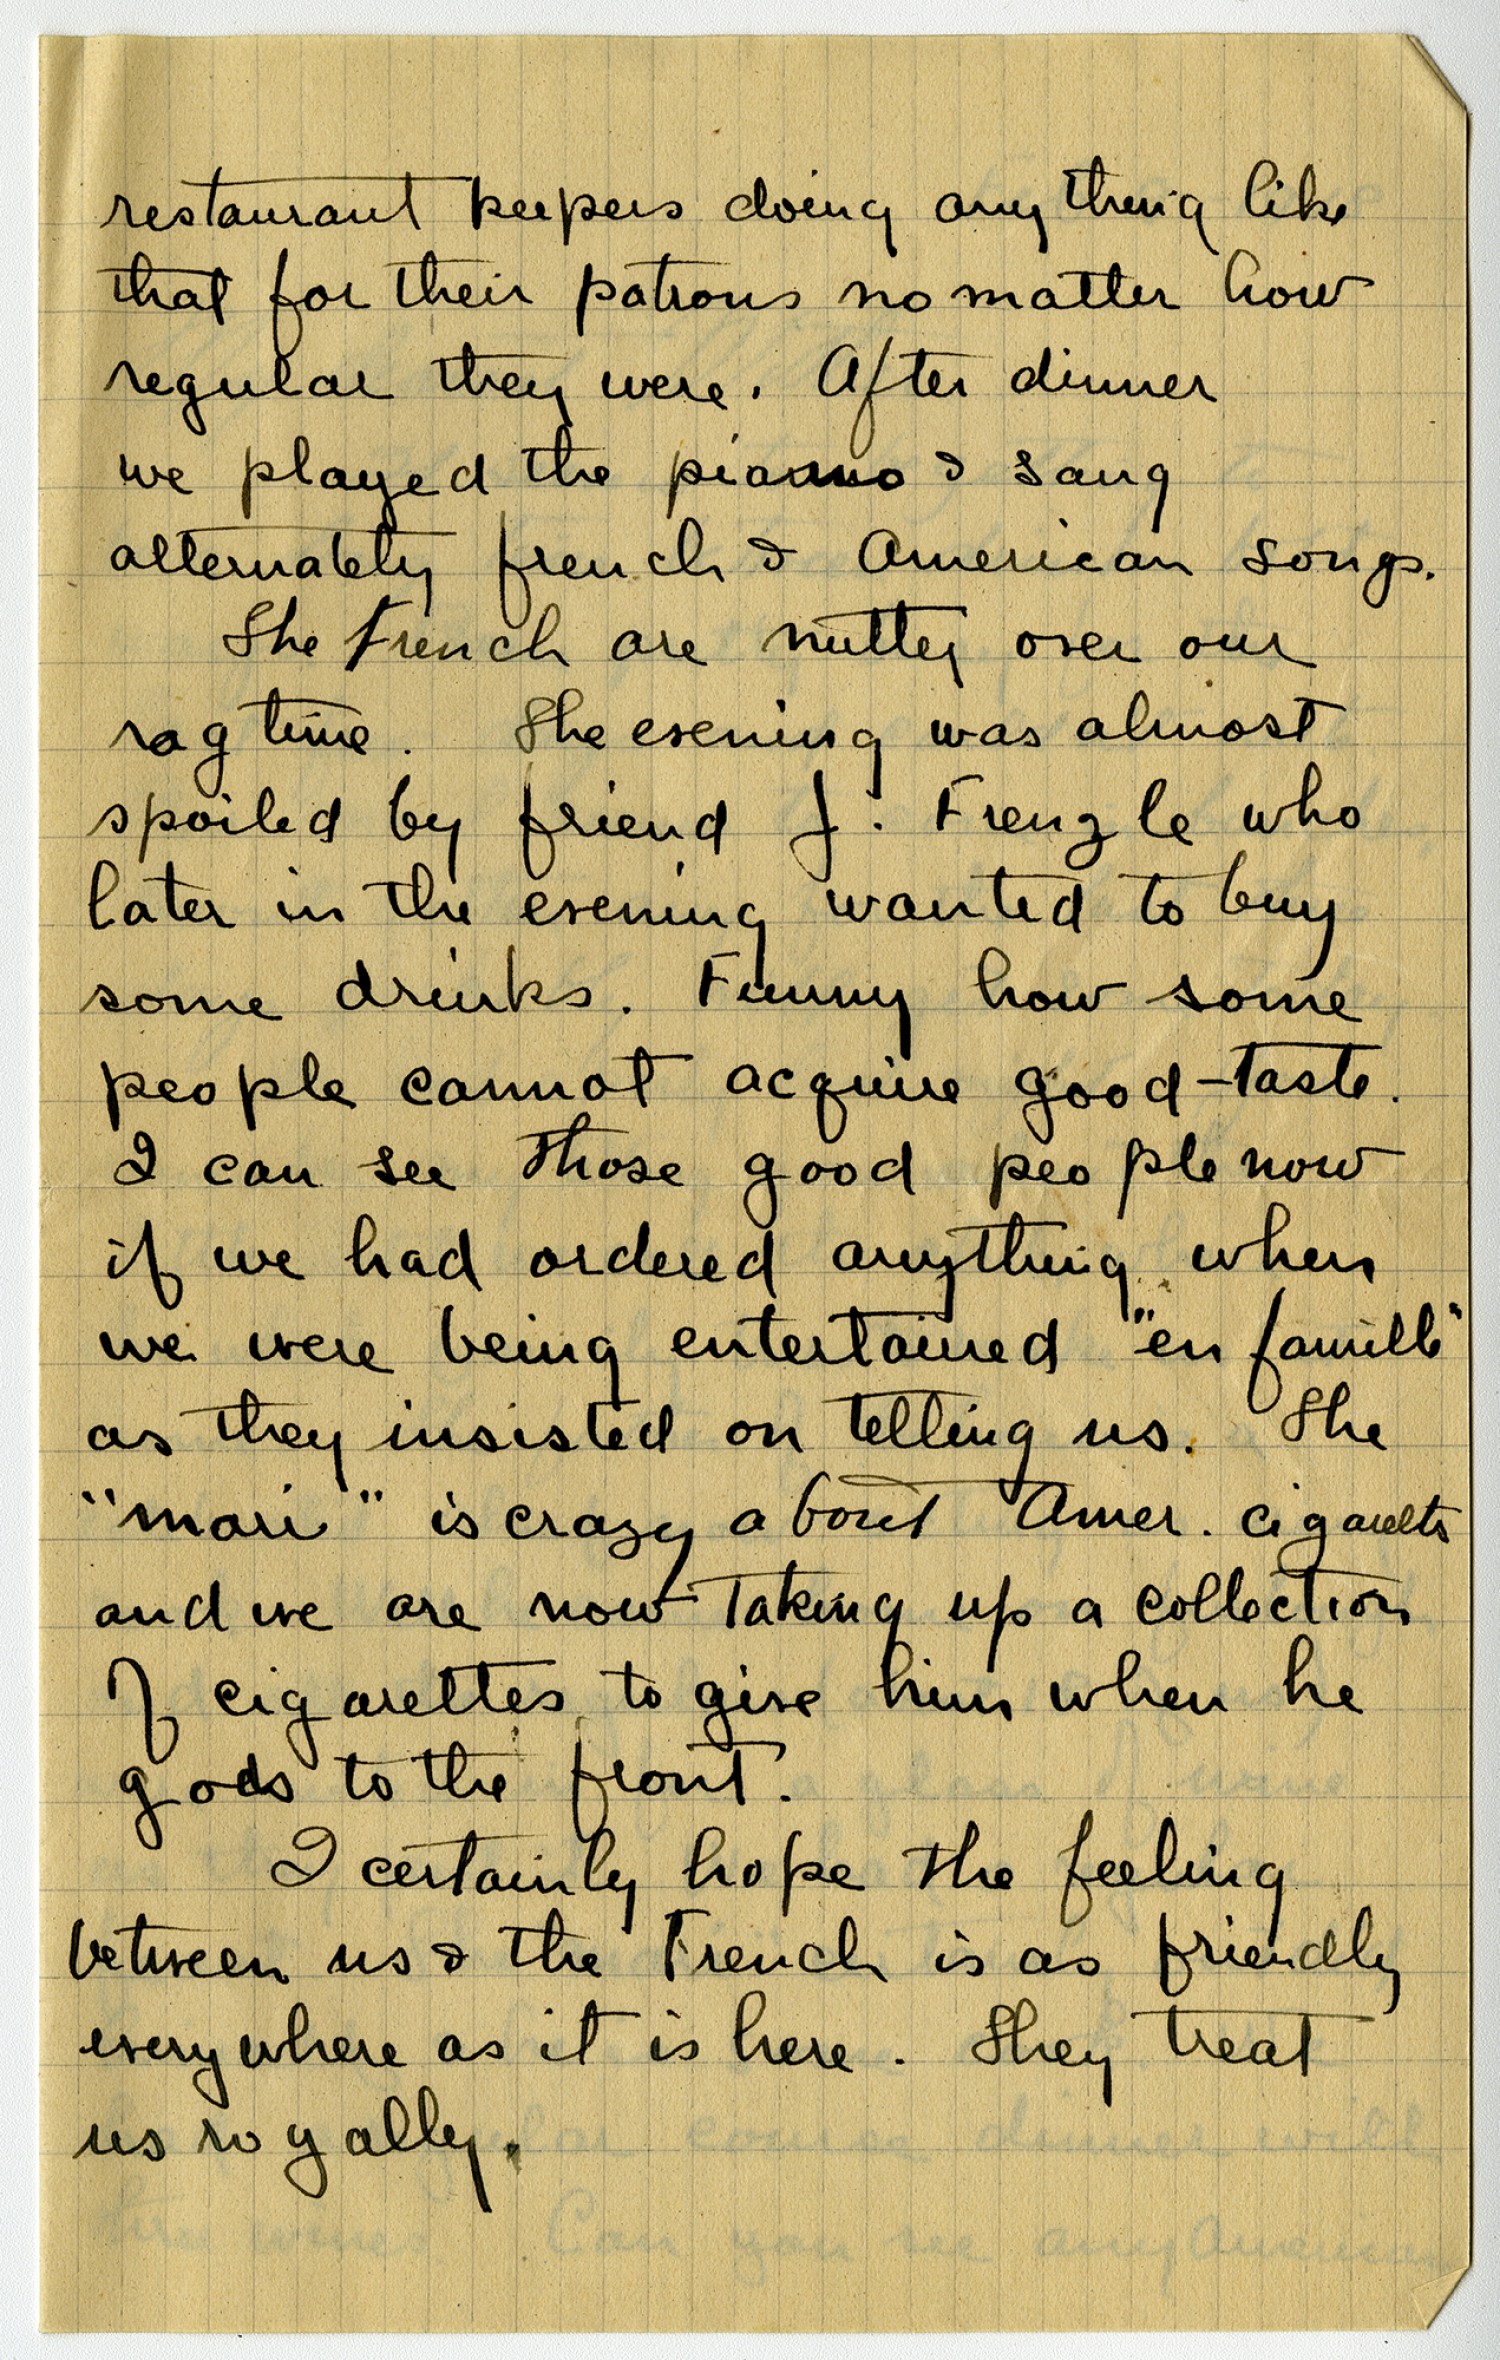 restaurant keepers doing anything like
that for their patrons no matter how
regular they were. After dinner
we played the piano & sang
alternately french & American songs.
The French are nutty over our
rag time. The evening was almost
spoiled by friend J. Frenzle who
later in the evening wanted to buy
some drinks. Funny how some
people cannot acquire good-taste.
I can see those good people now
if we had ordered anything when
we were being entertained "en famille"
as they insisted on telling us. The
"mari" is crazy about Amer. cigaretts
and we are now taking up a collection
of cigarettes to give him when he
goes to the front.
I certainly hope the feeling
between us & the French is as friendly
everywhere as it is here. They treat
us royally.